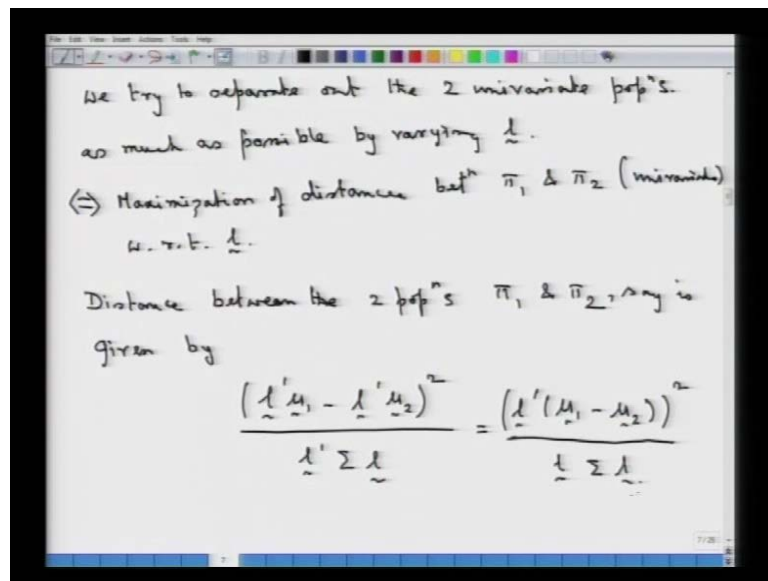 File Edit View Insert Actions Tools Help
we try to separate out the 2 univariate popⁿs.
as much as possible by varying l̰.
(⇒) Maximization of distance betⁿ π₁ & π₂ (univariate)
w.r.t. l̰.
Distance between the 2 popⁿs π₁ & π₂, say is
given by
(l̰'μ̰₁ - l̰'μ̰₂)² / l̰' Σ l̰ = (l̰'(μ̰₁ - μ̰₂))² / l̰ Σ l̰.
7/28
7